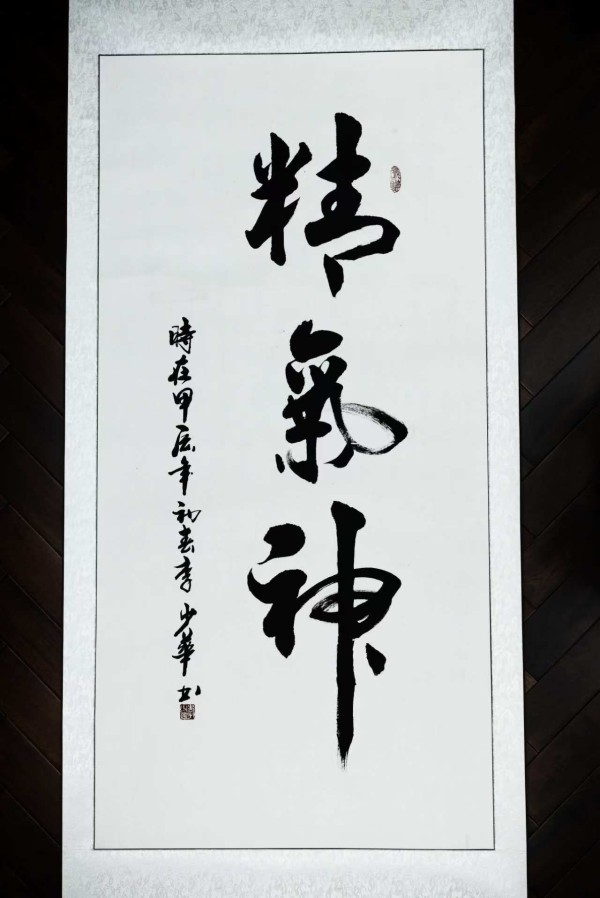 精氣神
時在甲辰年初春李少華书